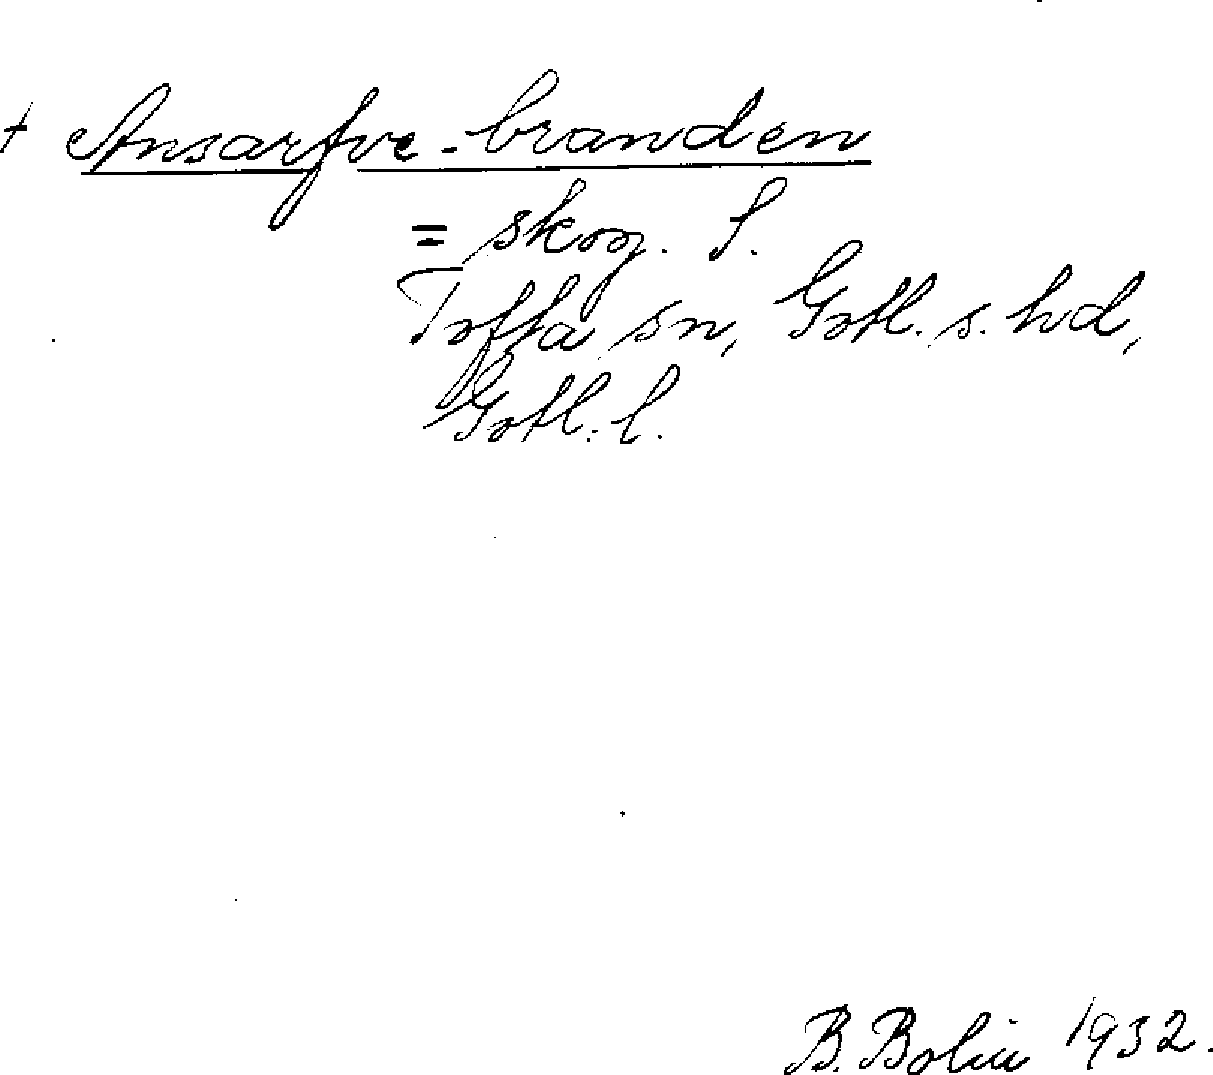 + Ansarfve-branden
= skog. S.
Tofta sn, Gotl. s. hd,
Gotl. l.
B. Bolin 1932.